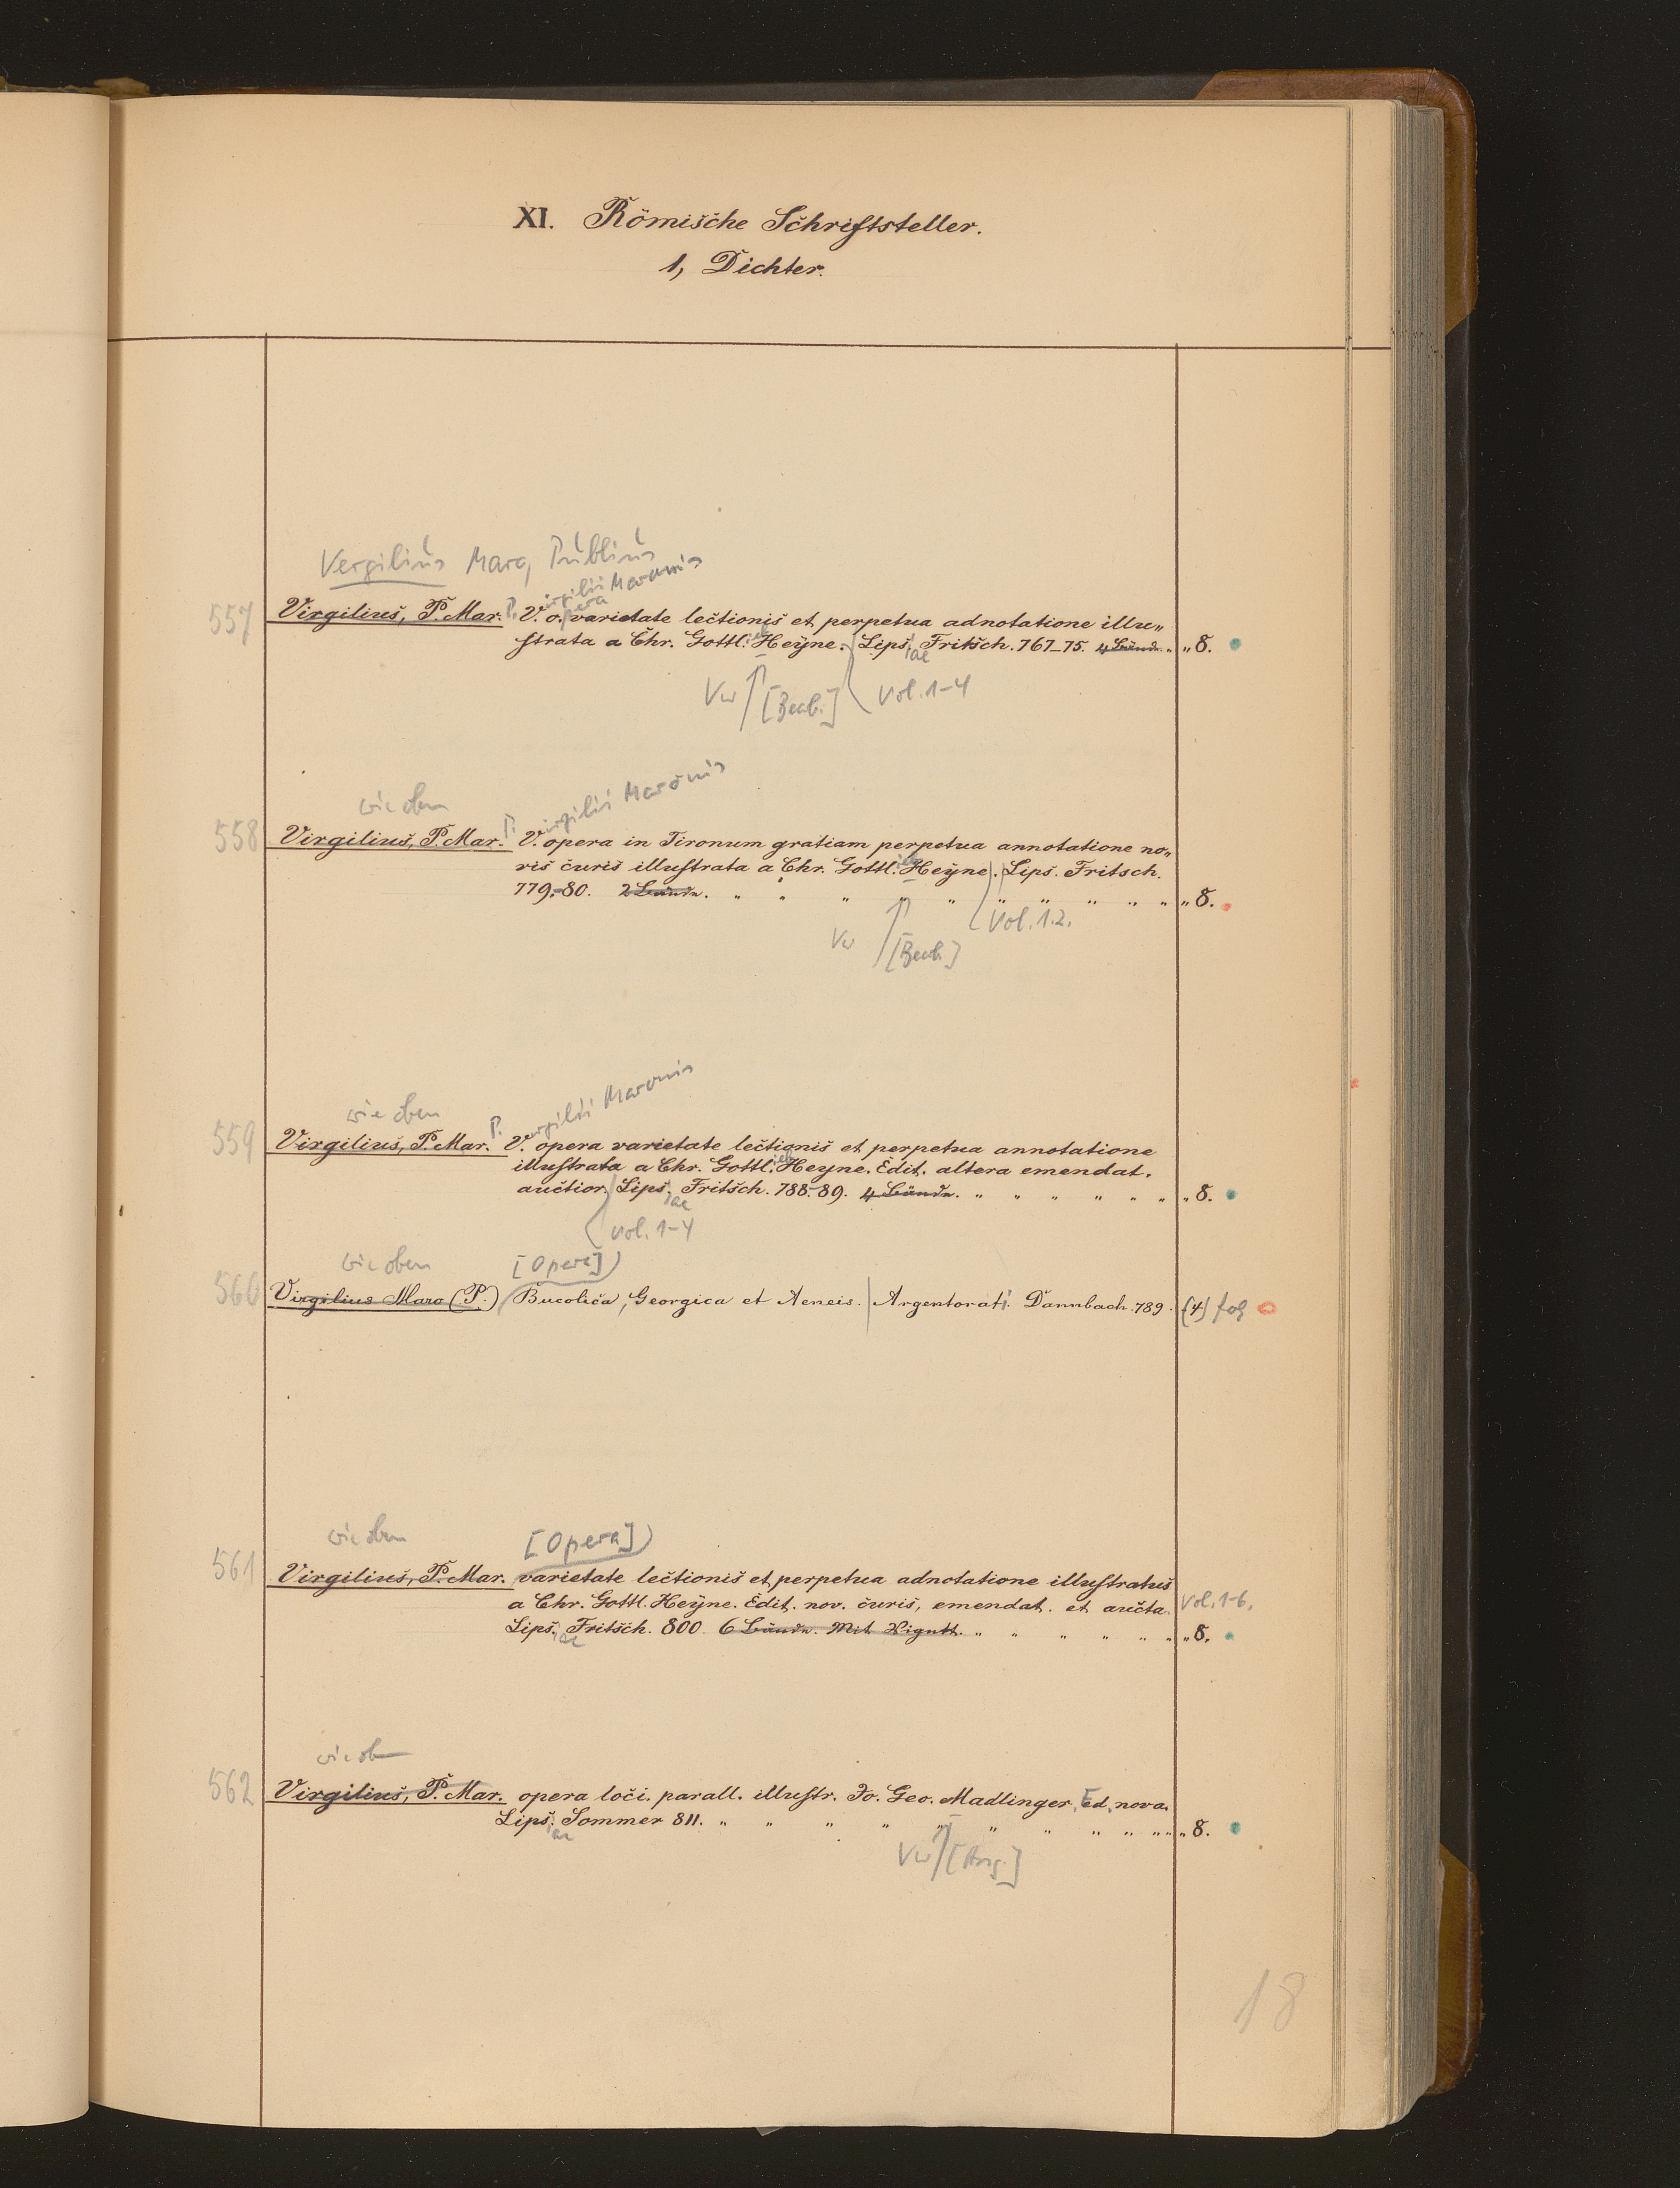 XI. Römische Schriftsteller.
1, Dichter.
Vergilius Maro, Publius
irgilii Maronis
pera
557 Virgilius, P. Mar. P. V. o. varietate lectionis et perpetua adnotatione illu„
strata a Chr. Gottl. Heyne. Lips. Fritsch. 767_75. 4 Bände. „ „ 8.
iae
Vw [Bearb.] Vol. 1-4
wie oben
irgilii Maronis
558 Virgilius, P. Mar. P. V. opera in Tironum gratiam perpetua annotatione no„
vis curis illustrata a Chr. Gottl. Heyne. Lips. Fritsch.
779.-80. 2 Bände. „ „ „ „ „ „ „ „ „ „ „ 8.
Vol. 1.2.
Vw [Bearb.]
wie oben
irgilii Maronis
559 Virgilius, P. Mar. P. V. opera varietate lectionis et perpetua annotatione
illustrata a Chr. Gottl. ieb Heyne. Edit. altera emendat.
auctior. Lips. Fritsch. 788-89. 4 Bände. „ „ „ „ „ „ „ 8.
iae
Vol. 1-4
wie oben [Opera]
560 Virgilius Maro (P.) Bucolica, Georgica et Aeneis. Argentorati. Dannbach. 789. (4) fol
wie oben [Opera]
561 Virgilius, P. Mar. varietate lectionis et perpetua adnotatione illustratus
a Chr. Gottl. Heyne. Edit. nov. curis, emendat. et aucta. Vol. 1-6.
Lips. Fritsch. 800. 6 Bände. Mit Vignett. „ „ „ „ „ „ „ 8.
iae
wie ob
562 Virgilius, P. Mar. opera loci. parall. illustr. Jo. Geo. Madlinger. Ed. nova.
Lips. Sommer 811. „ „ „ „ „ „ „ „ „ „ „ „ 8.
iae
Vw [Hrsg.]
18